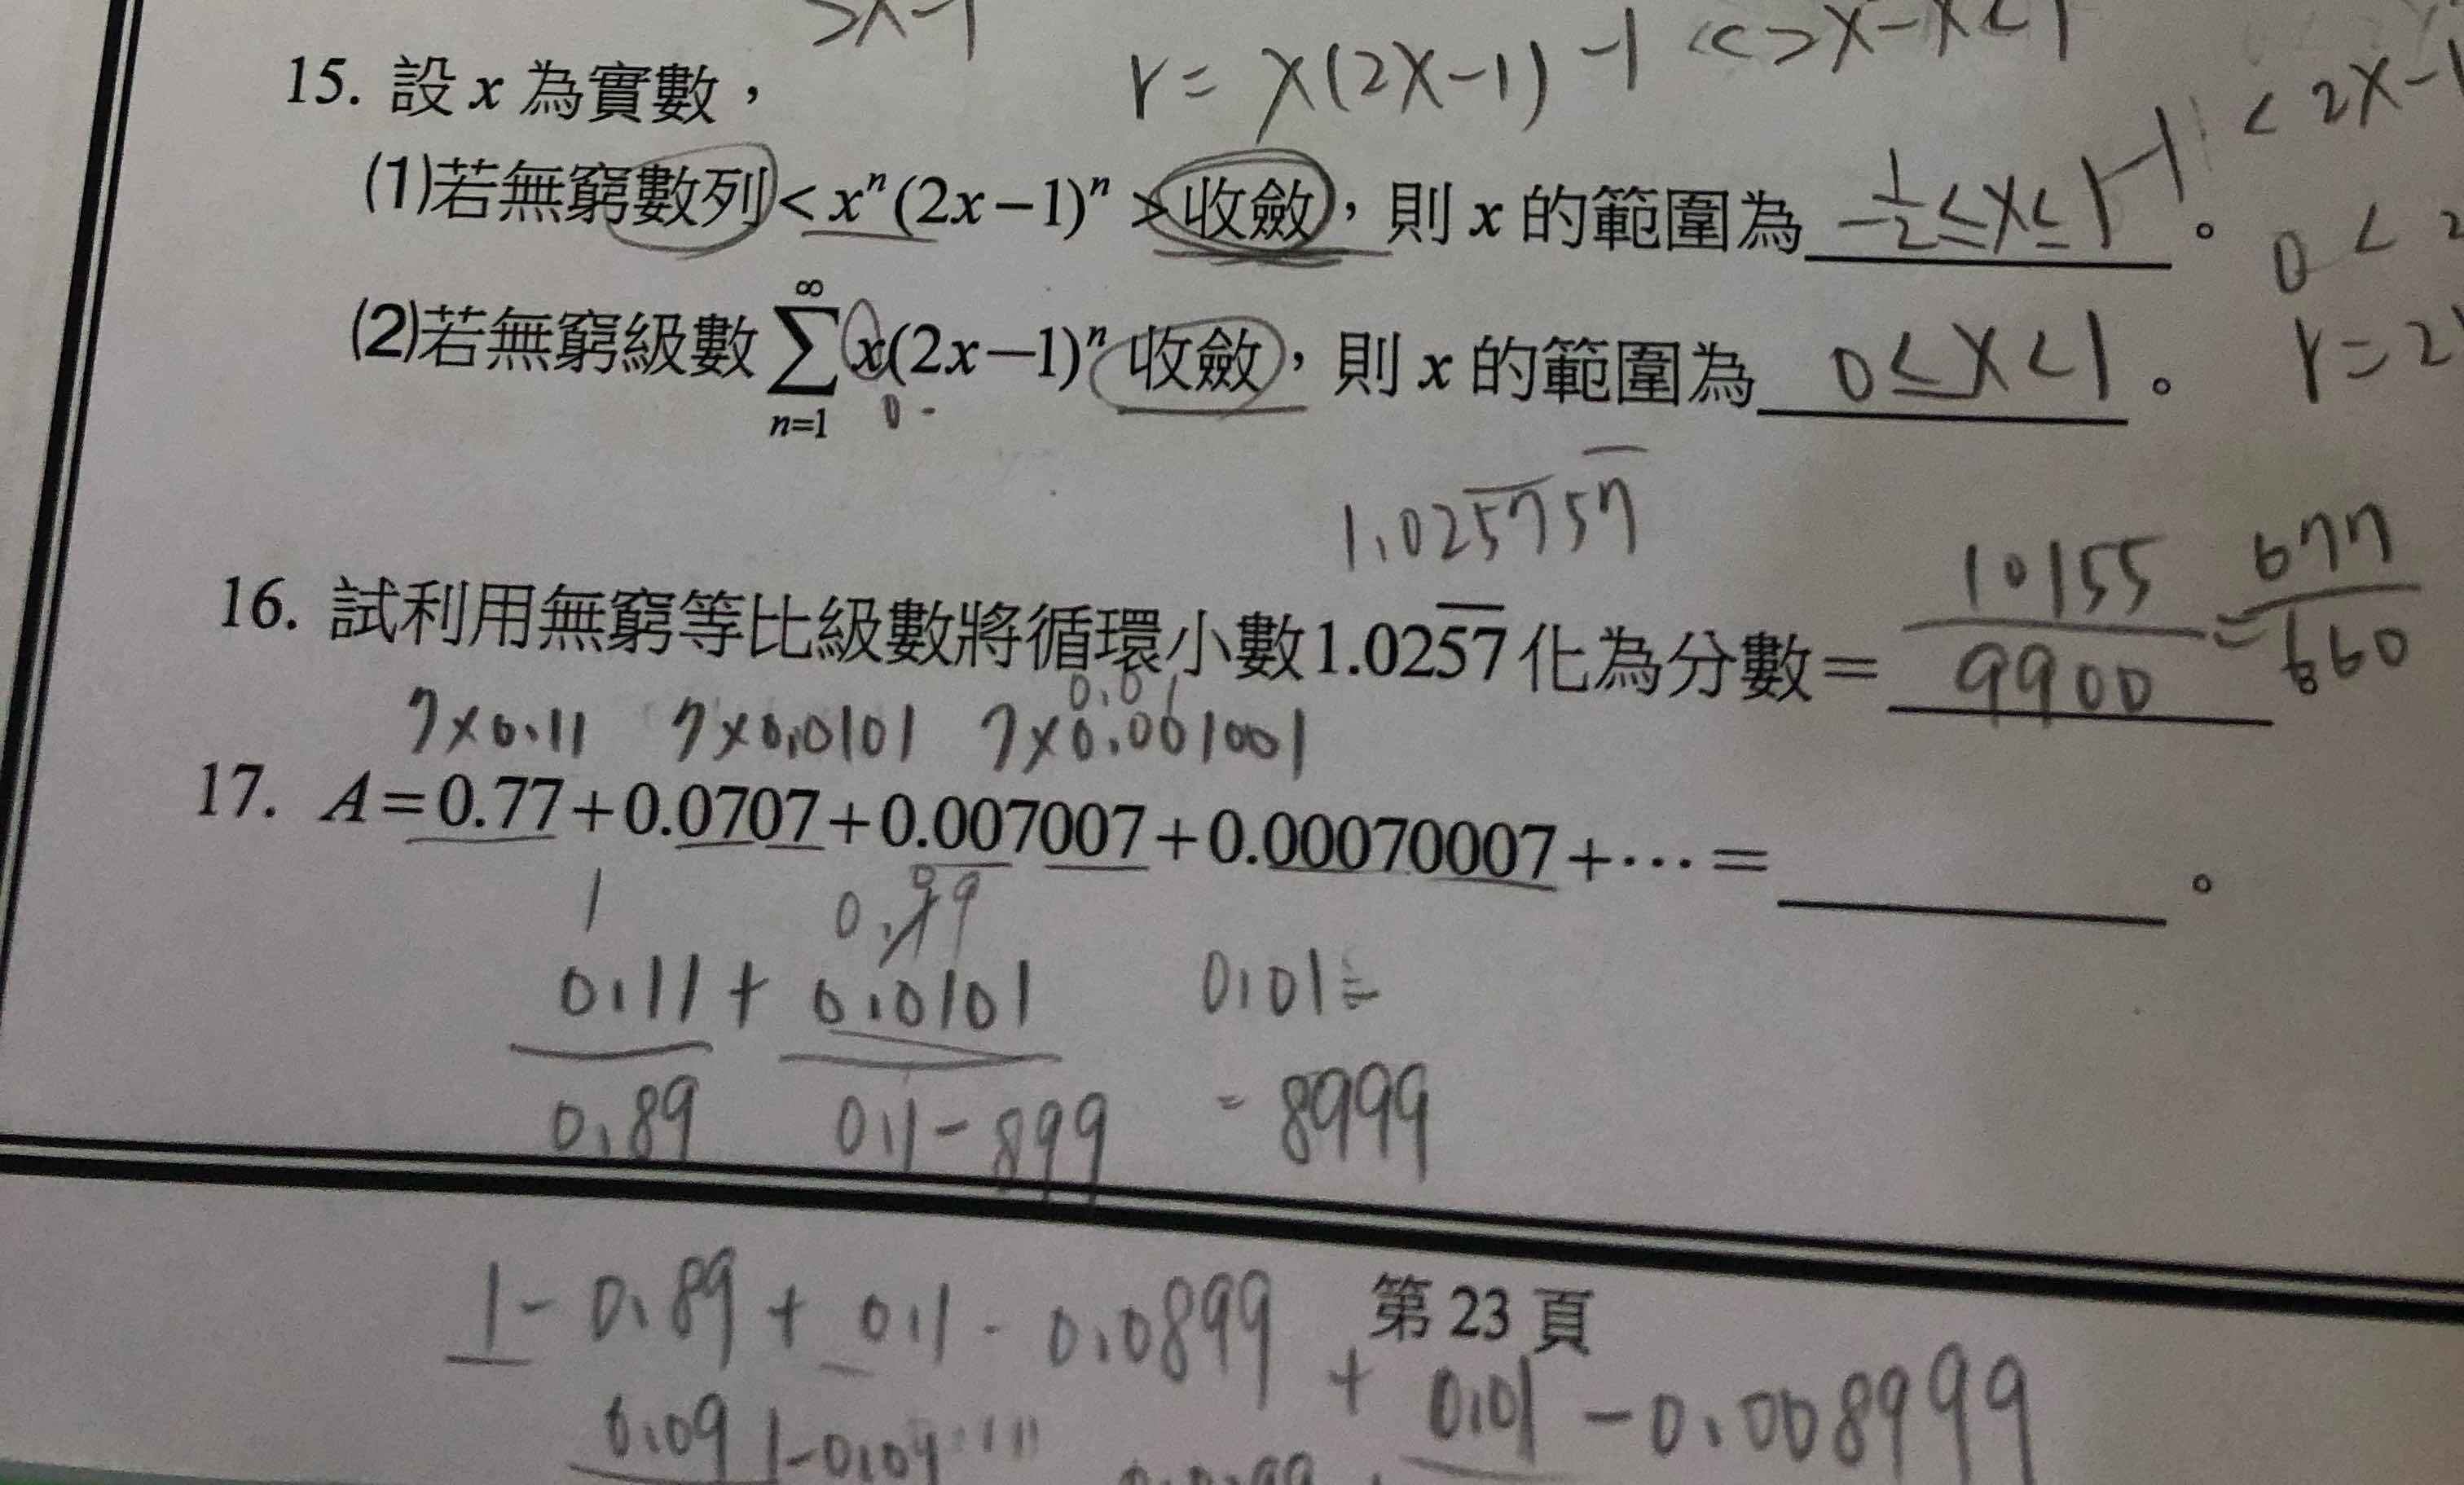 r = x(2x-1)
-1 < 2x²-x < 1
15. 設 x 為實數，
-1 < 2x-1
(1)若無窮數列< xⁿ(2x-1)ⁿ >收斂，則 x 的範圍為 -1/2 ≤ x ≤ 1 。
0 < 2
(2)若無窮級數 ∑_{n=1}^{∞} x(2x-1)ⁿ 收斂，則 x 的範圍為 0 ≤ x < 1 。
r = 2
0
1.025757
16. 試利用無窮等比級數將循環小數1.02\overline{57}化為分數= 10155/9900 = 677/660
7×0.11 7×0.0101 7×0.001001
17. A=0.77+0.0707+0.007007+0.00070007+⋯= 。
1
0.11 + 0.0101 0.01=
0.89 0.1-899 = 8999
第 23 頁
1-0.89+0.1-0.0899+0.01-0.008999
0.09